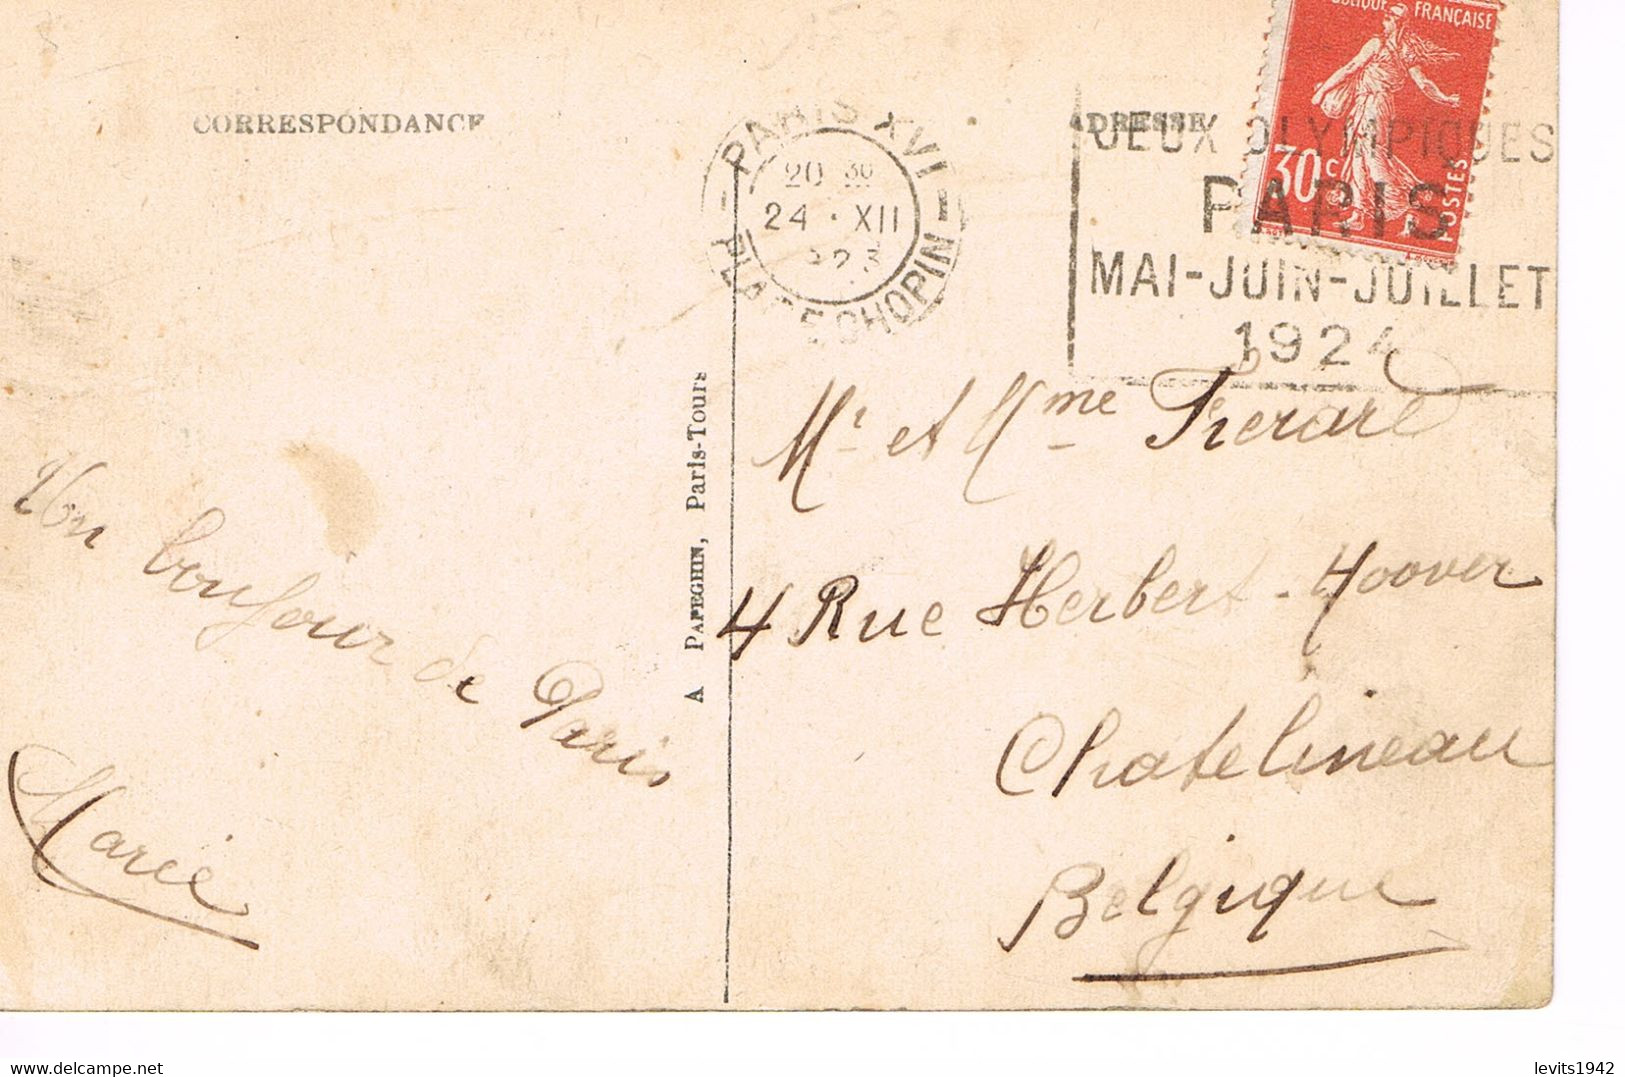 CORRESPONDANCE
ADRESSE
RÉPUBLIQUE FRANÇAISE
30 c
POSTES
PARIS XVI
20 30
24 · XII
23
PLACE CHOPIN
JEUX OLYMPIQUES
PARIS
MAI-JUIN-JUILLET
1924
A PAPEGHIN, Paris-Tours
Un bonjour de Paris
Marie
Mr et Mme
4 Rue Herbert-Hoover
Chatelineau
Belgique
levits1942